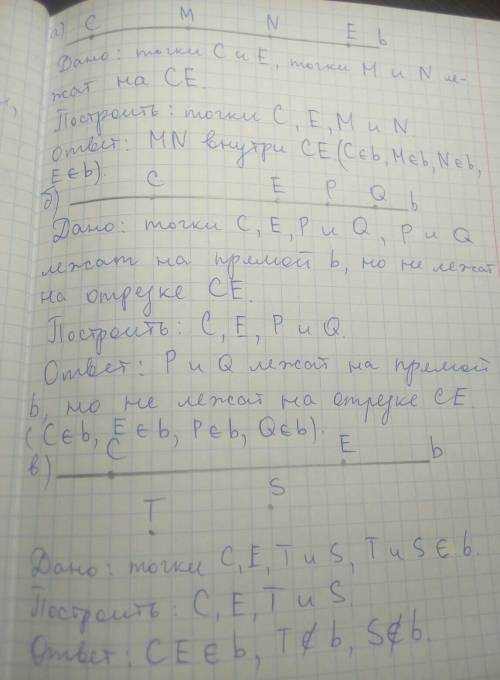 а) C M N E b
Дано: точки C и E, точки M и N ле-
жат на CE.
Построить: точки C, E, M и N
Ответ: MN внутри CE. (C∈b, M∈b, N∈b,
E∈b).
б) C E P Q b
Дано: точки C, E, P и Q, P и Q
лежат на прямой b, но не лежат
на отрезке CE.
Построить: C, E, P и Q.
Ответ: P и Q лежат на прямой
b, но не лежат на отрезке CE.
(C∈b, E∈b, P∈b, Q∈b).
в) C E b
T S
Дано: точки C, E, T и S, T и S ∈ b.
Построить: C, E, T и S.
Ответ: CE∈b, T∉b, S∉b.